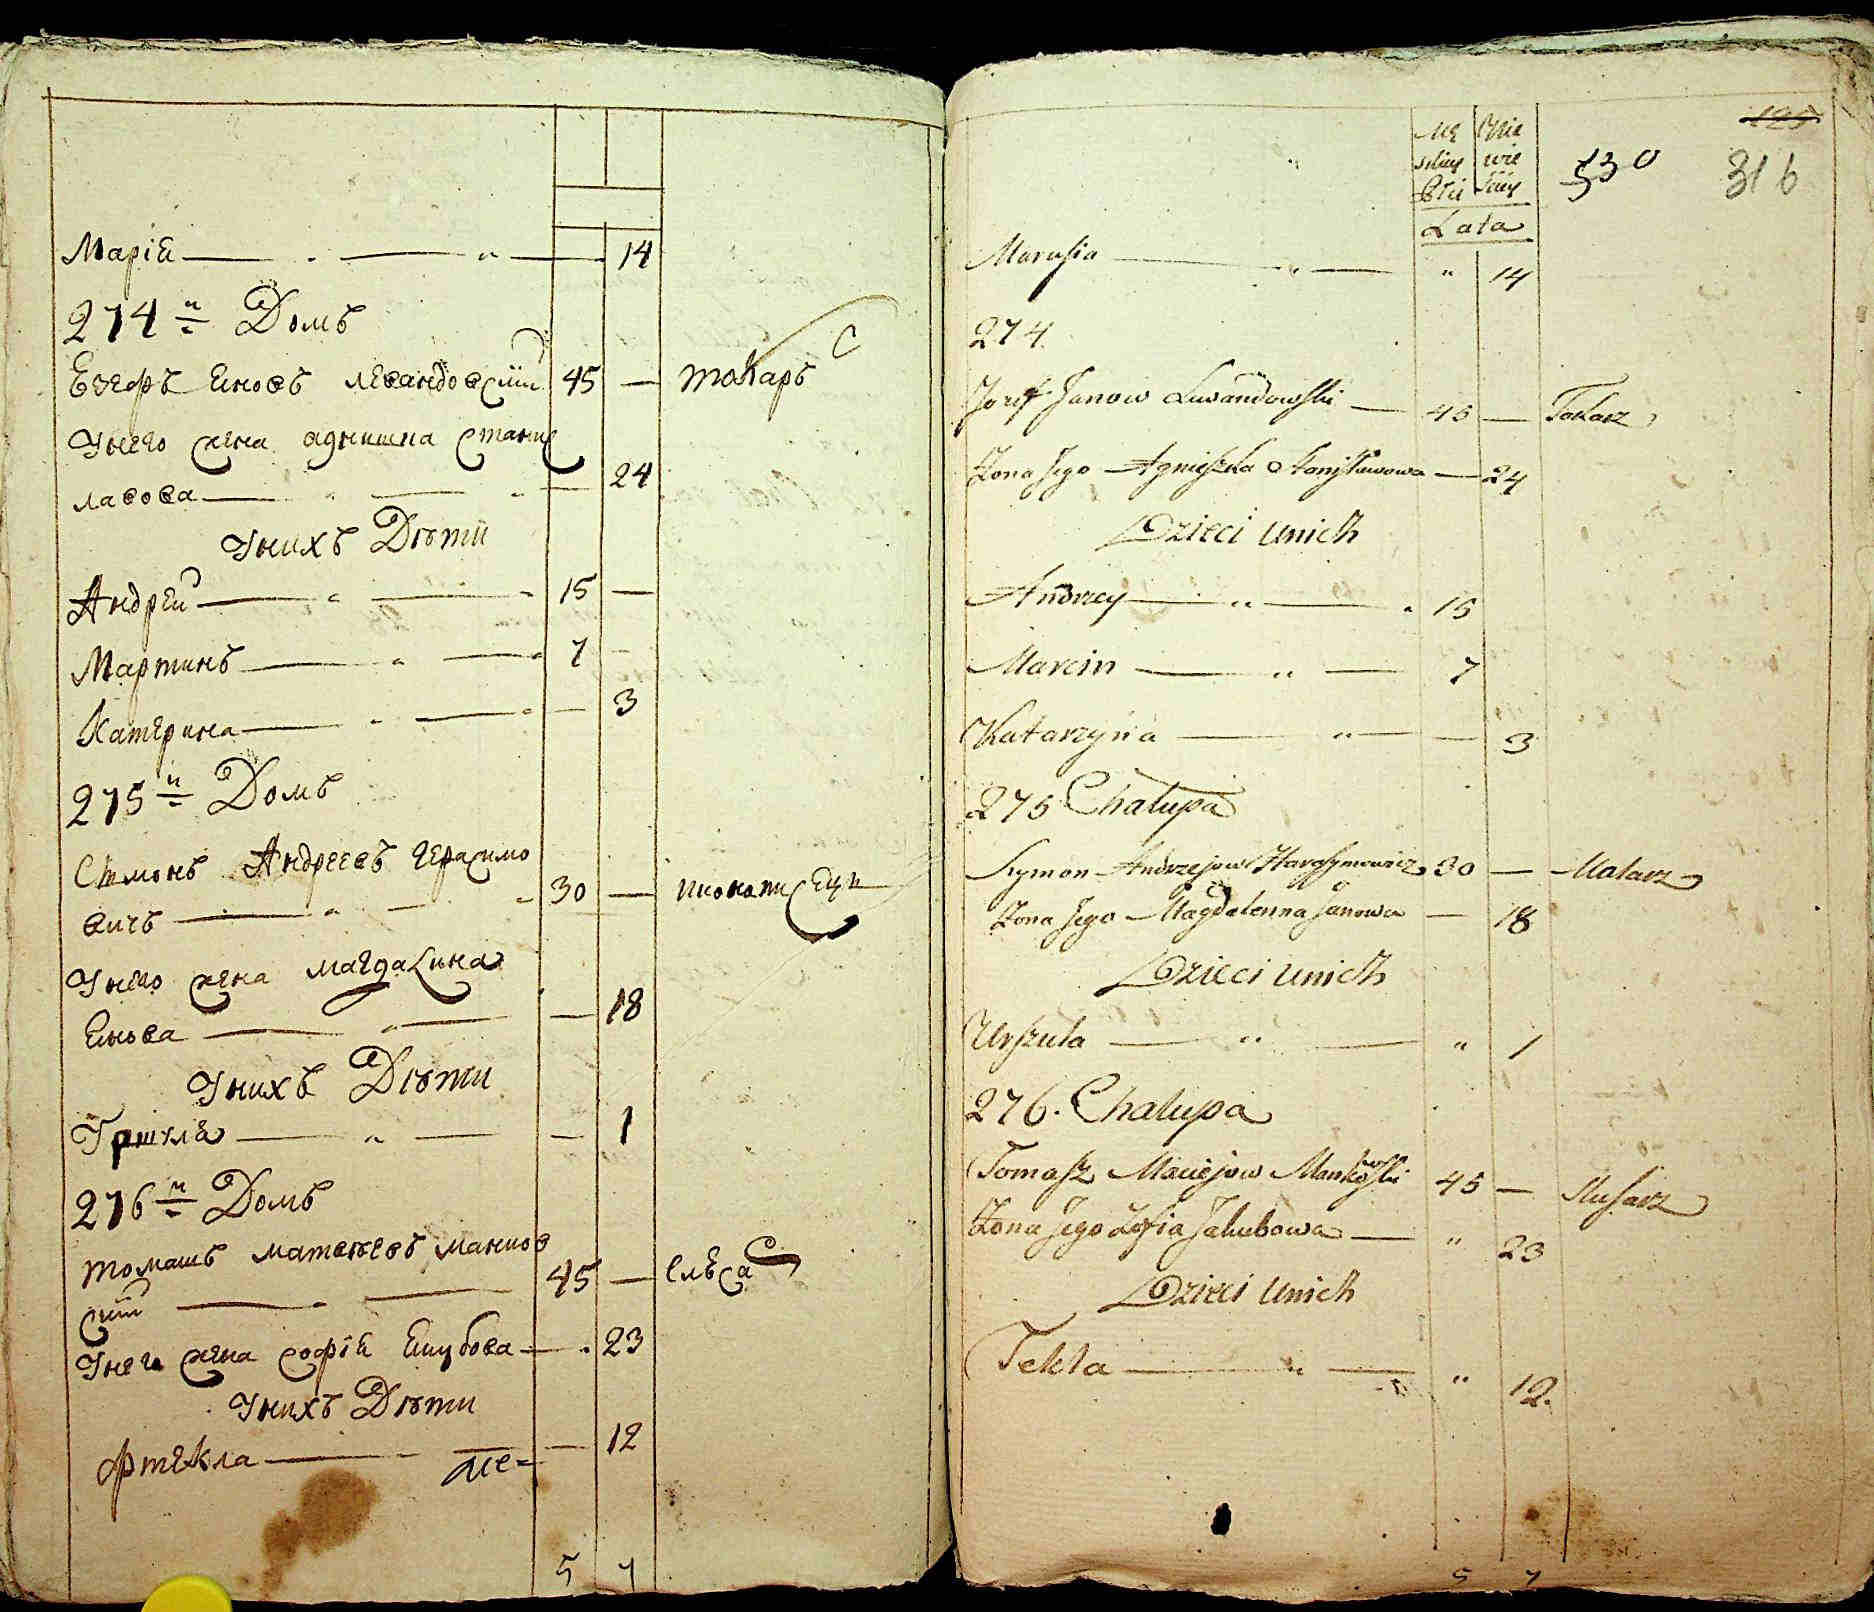 Марiя — „ — „ — 14
274 й Домъ
Езефъ Яновъ левандовскiй 45 — токарь
Унего жена агнишка Станис
лавова — „ — „ — 24
Унихъ Дѣти
Андрей — „ — „ 15 —
Мартинъ — „ — „ 7 —
Катерина — „ — „ — 3
275 й Домъ
Симонъ Андреевъ Герасимо
вичъ — „ — „ 30 — иконописецъ
Унего жена магдалина
Янова — „ — — 18
Унихъ Дѣти
Гршуля — „ — — 1
276 й Домъ
томашъ матвѣевъ манков
скiй — „ — 45 — слѣса
Унего жена софiя Якубова — „ 23
Унихъ Дѣти
Фтекла — — 12
же =
5 7
Mę Bia
skiey wie
Płci skiey
Lata
530
125
316
Marusia — „ — „ 14
274.
Jozef Janow Lewandowski — 45 — Tokarz
Zona Jego Agnieszka Stanisławowa — 24
Dzieci unich
Andrzey — „ — „ 15
Marcin — „ — 7
Katarzyna — „ — — 3
275 Chalupa
Szymon Andrzejow Harasymowicz 30 — Malarz
Zona Jego Magdalenna Janowa — 18
Dzieci unich
Urszula — „ — „ 1
276. Chalupa
Tomasz Maciejow Mankowski 45 — Slusarz
Zona Jego Zofia Jakubowa — „ 23
Dzieci unich
Tekla — „ — „ 12.
5 7